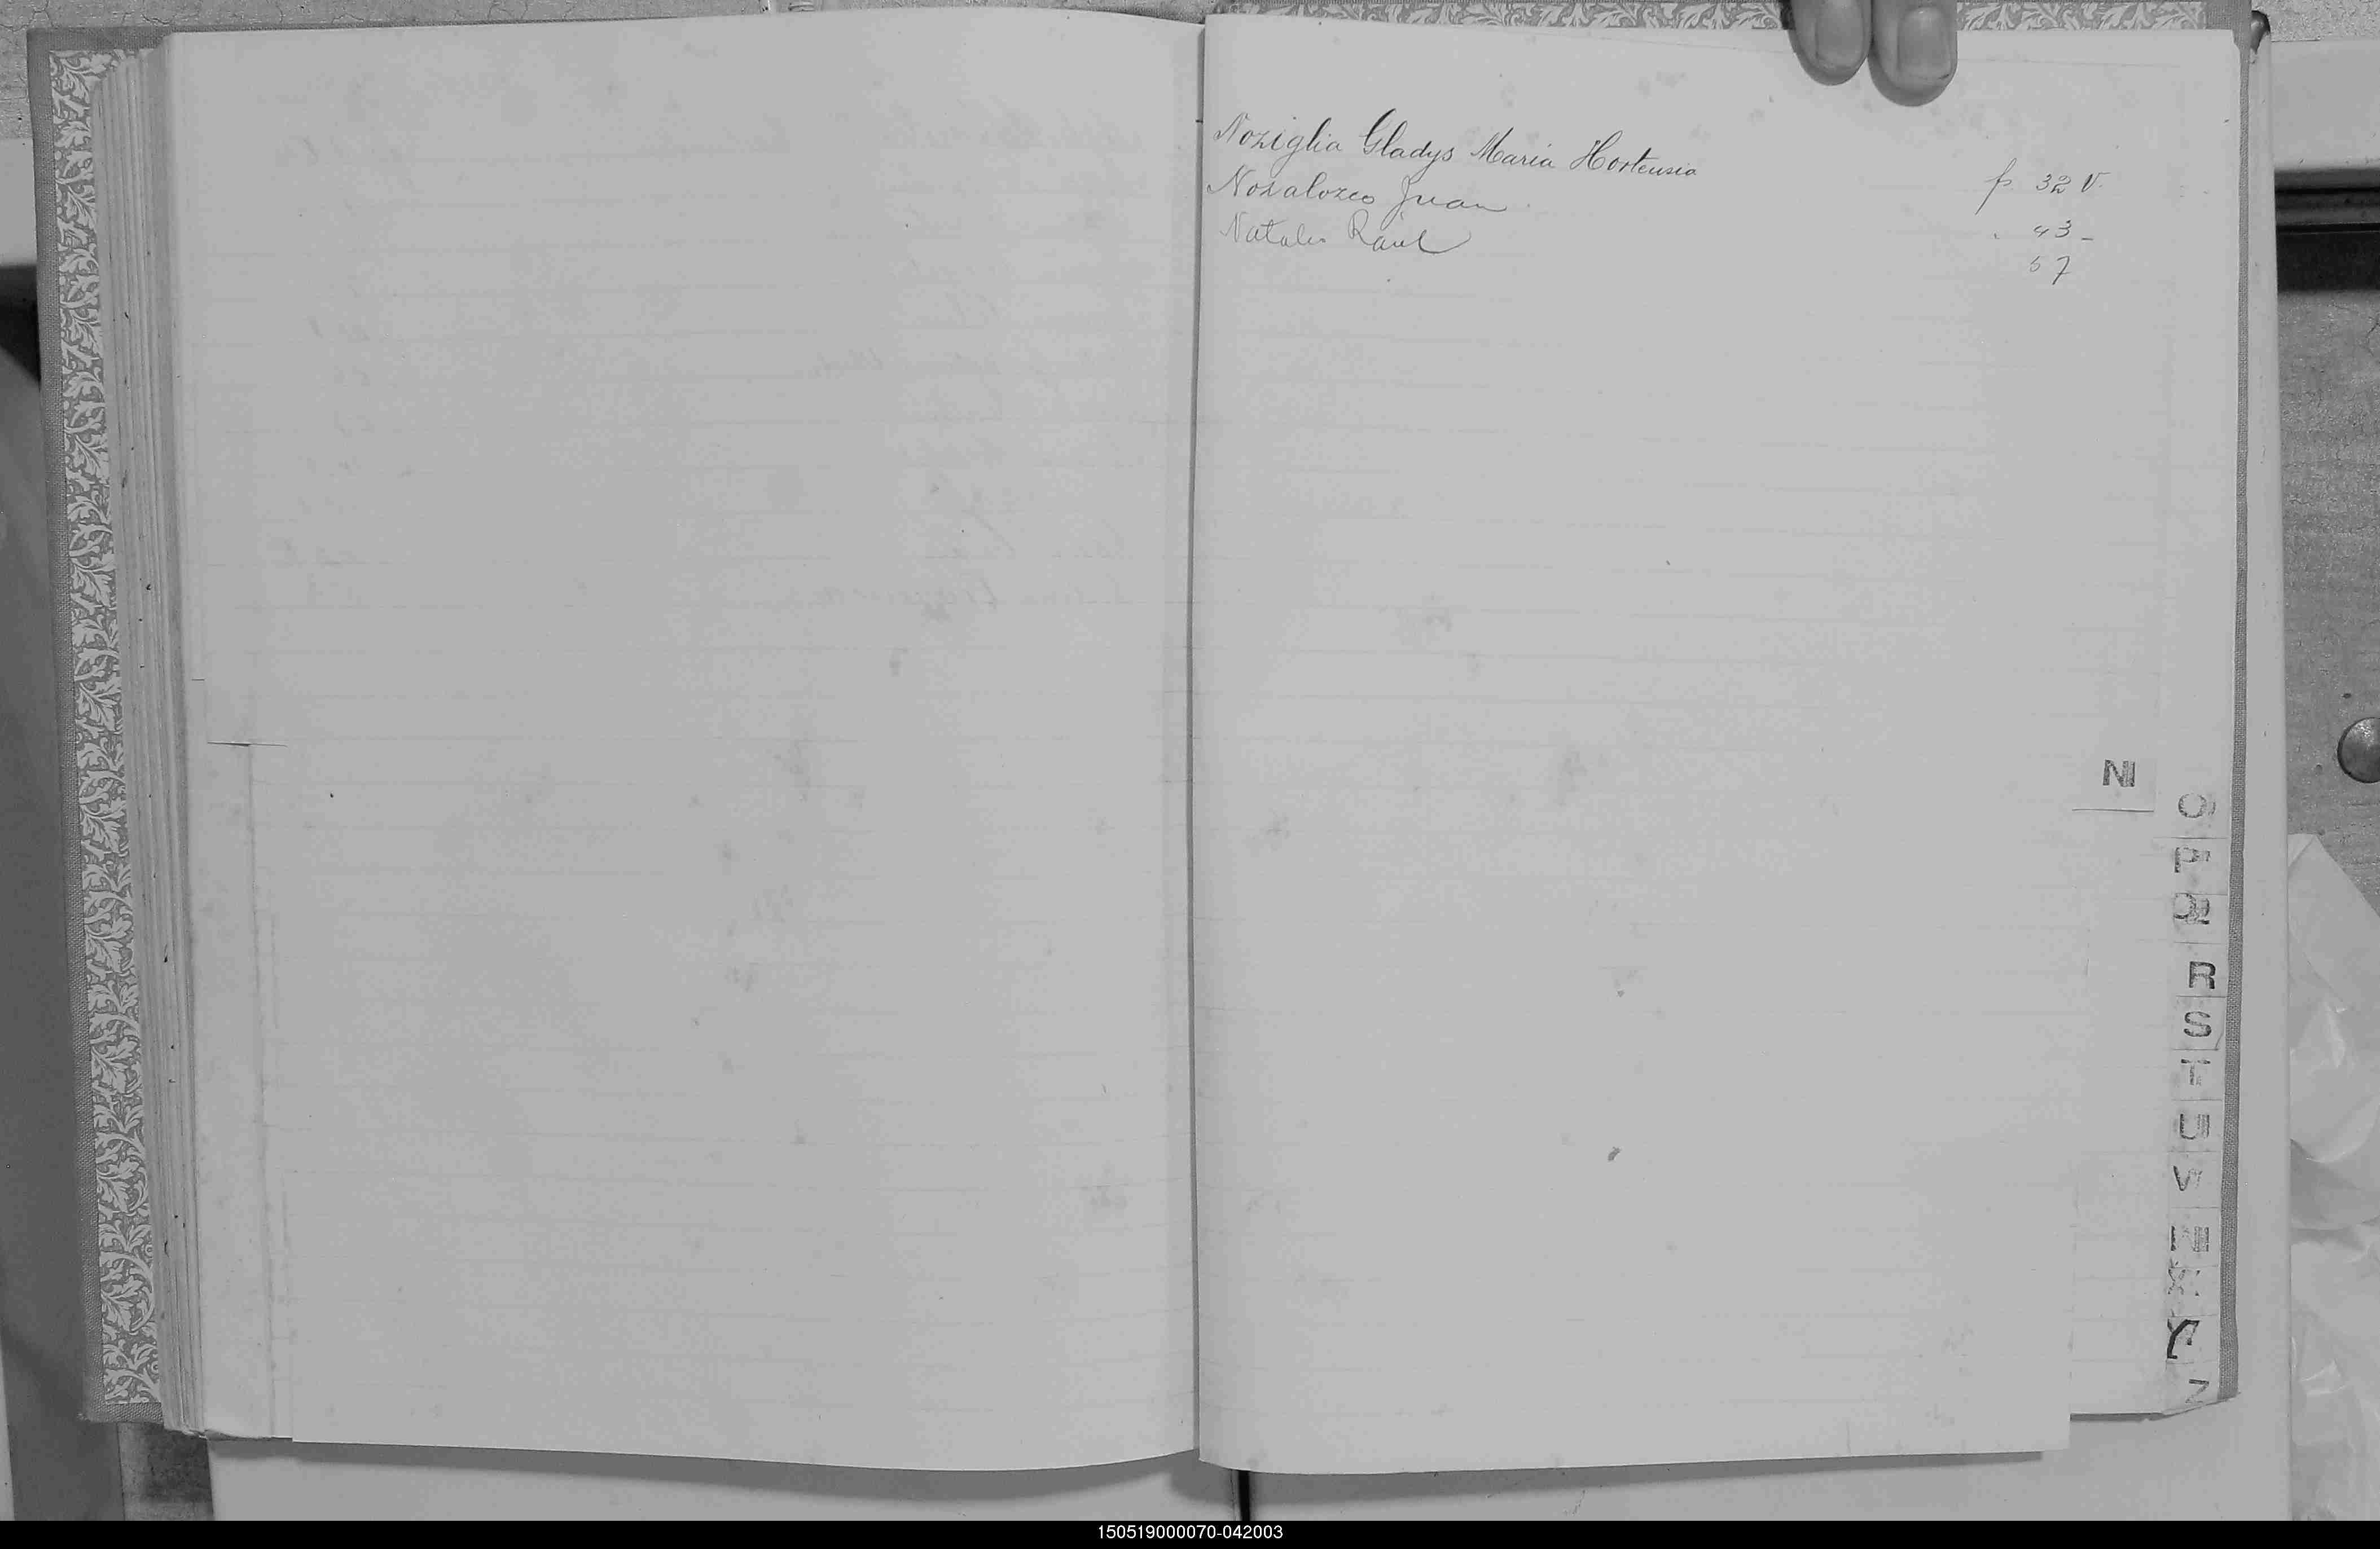 Noziglia Gladys Maria Hortensia p 32 V.
Nozalozco Juan . 43 -
Natales Raúl 57
N
O
P
Q
R
S
T
U
V
X
Y
Z
150519000070-042003